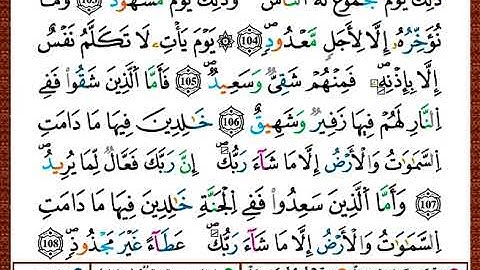 ذَٰلِكَ يَوْمٌ مَّجْمُوعٌ لَّهُ النَّاسُ وَذَٰلِكَ يَوْمٌ مَّشْهُودٌ ﴿103﴾ وَمَا
نُؤَخِّرُهُۥٓ إِلَّا لِأَجَلٍ مَّعْدُودٍ ﴿104﴾ يَوْمَ يَأْتِ لَا تَكَلَّمُ نَفْسٌ
إِلَّا بِإِذْنِهِۦ ۚ فَمِنْهُمْ شَقِىٌّ وَسَعِيدٌ ﴿105﴾ فَأَمَّا ٱلَّذِينَ شَقُوا۟ فَفِى
ٱلنَّارِ لَهُمْ فِيهَا زَفِيرٌ وَشَهِيقٌ ﴿106﴾ خَٰلِدِينَ فِيهَا مَا دَامَتِ
ٱلسَّمَٰوَٰتُ وَٱلْأَرْضُ إِلَّا مَا شَآءَ رَبُّكَ ۚ إِنَّ رَبَّكَ فَعَّالٌ لِّمَا يُرِيدُ
﴿107﴾ وَأَمَّا ٱلَّذِينَ سُعِدُوا۟ فَفِى ٱلْجَنَّةِ خَٰلِدِينَ فِيهَا مَا دَامَتِ
ٱلسَّمَٰوَٰتُ وَٱلْأَرْضُ إِلَّا مَا شَآءَ رَبُّكَ ۖ عَطَآءً غَيْرَ مَجْذُوذٍ ﴿108﴾